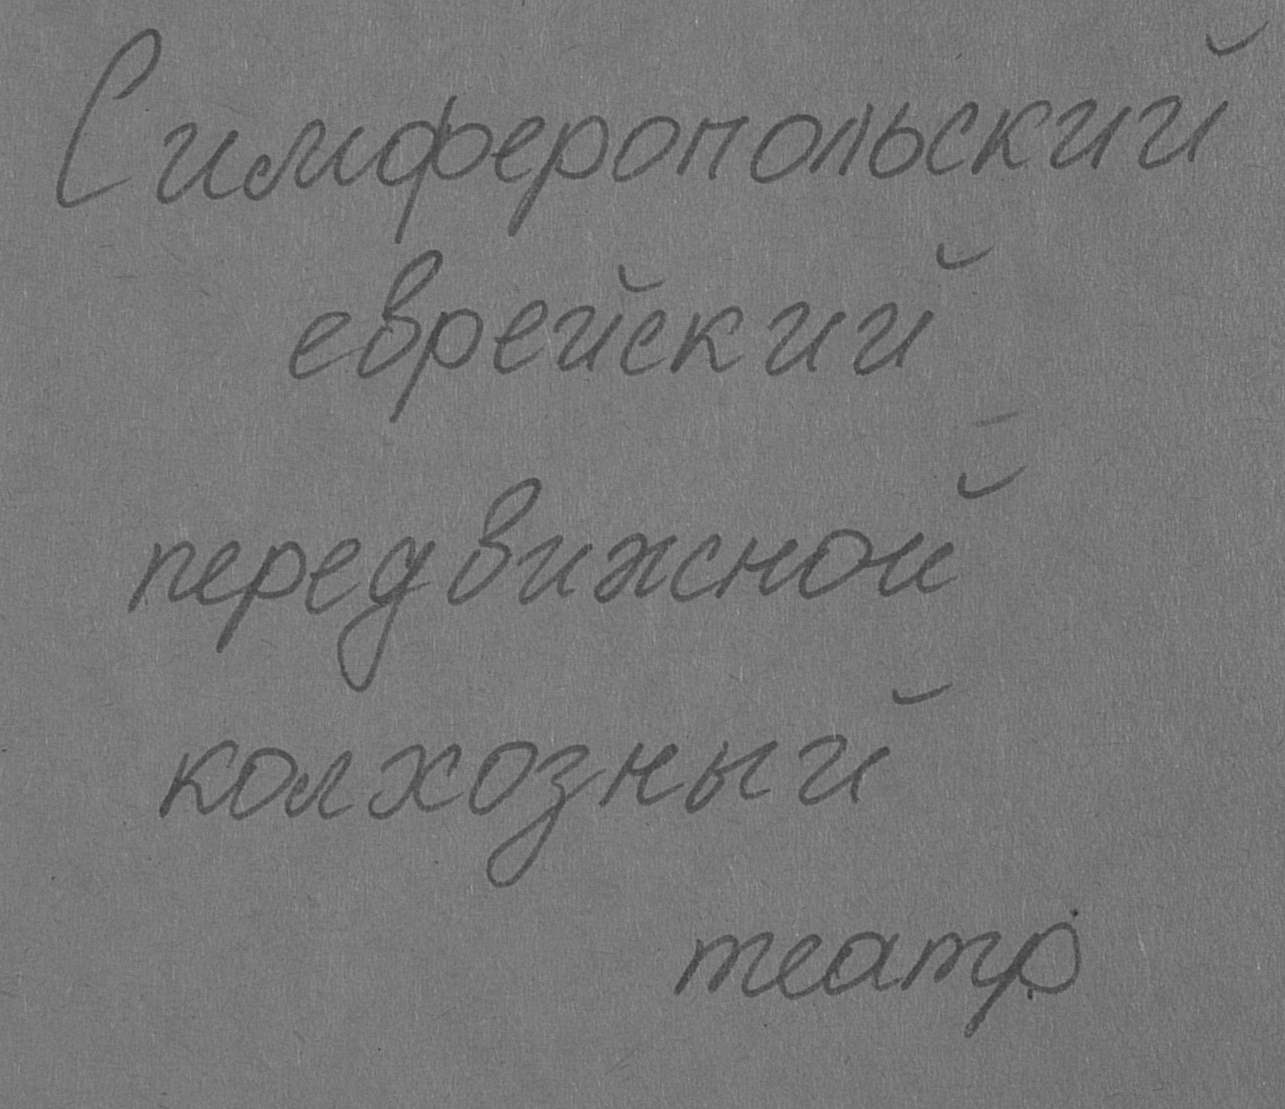 Симферопольский
еврейский
передвижной
колхозный
театр